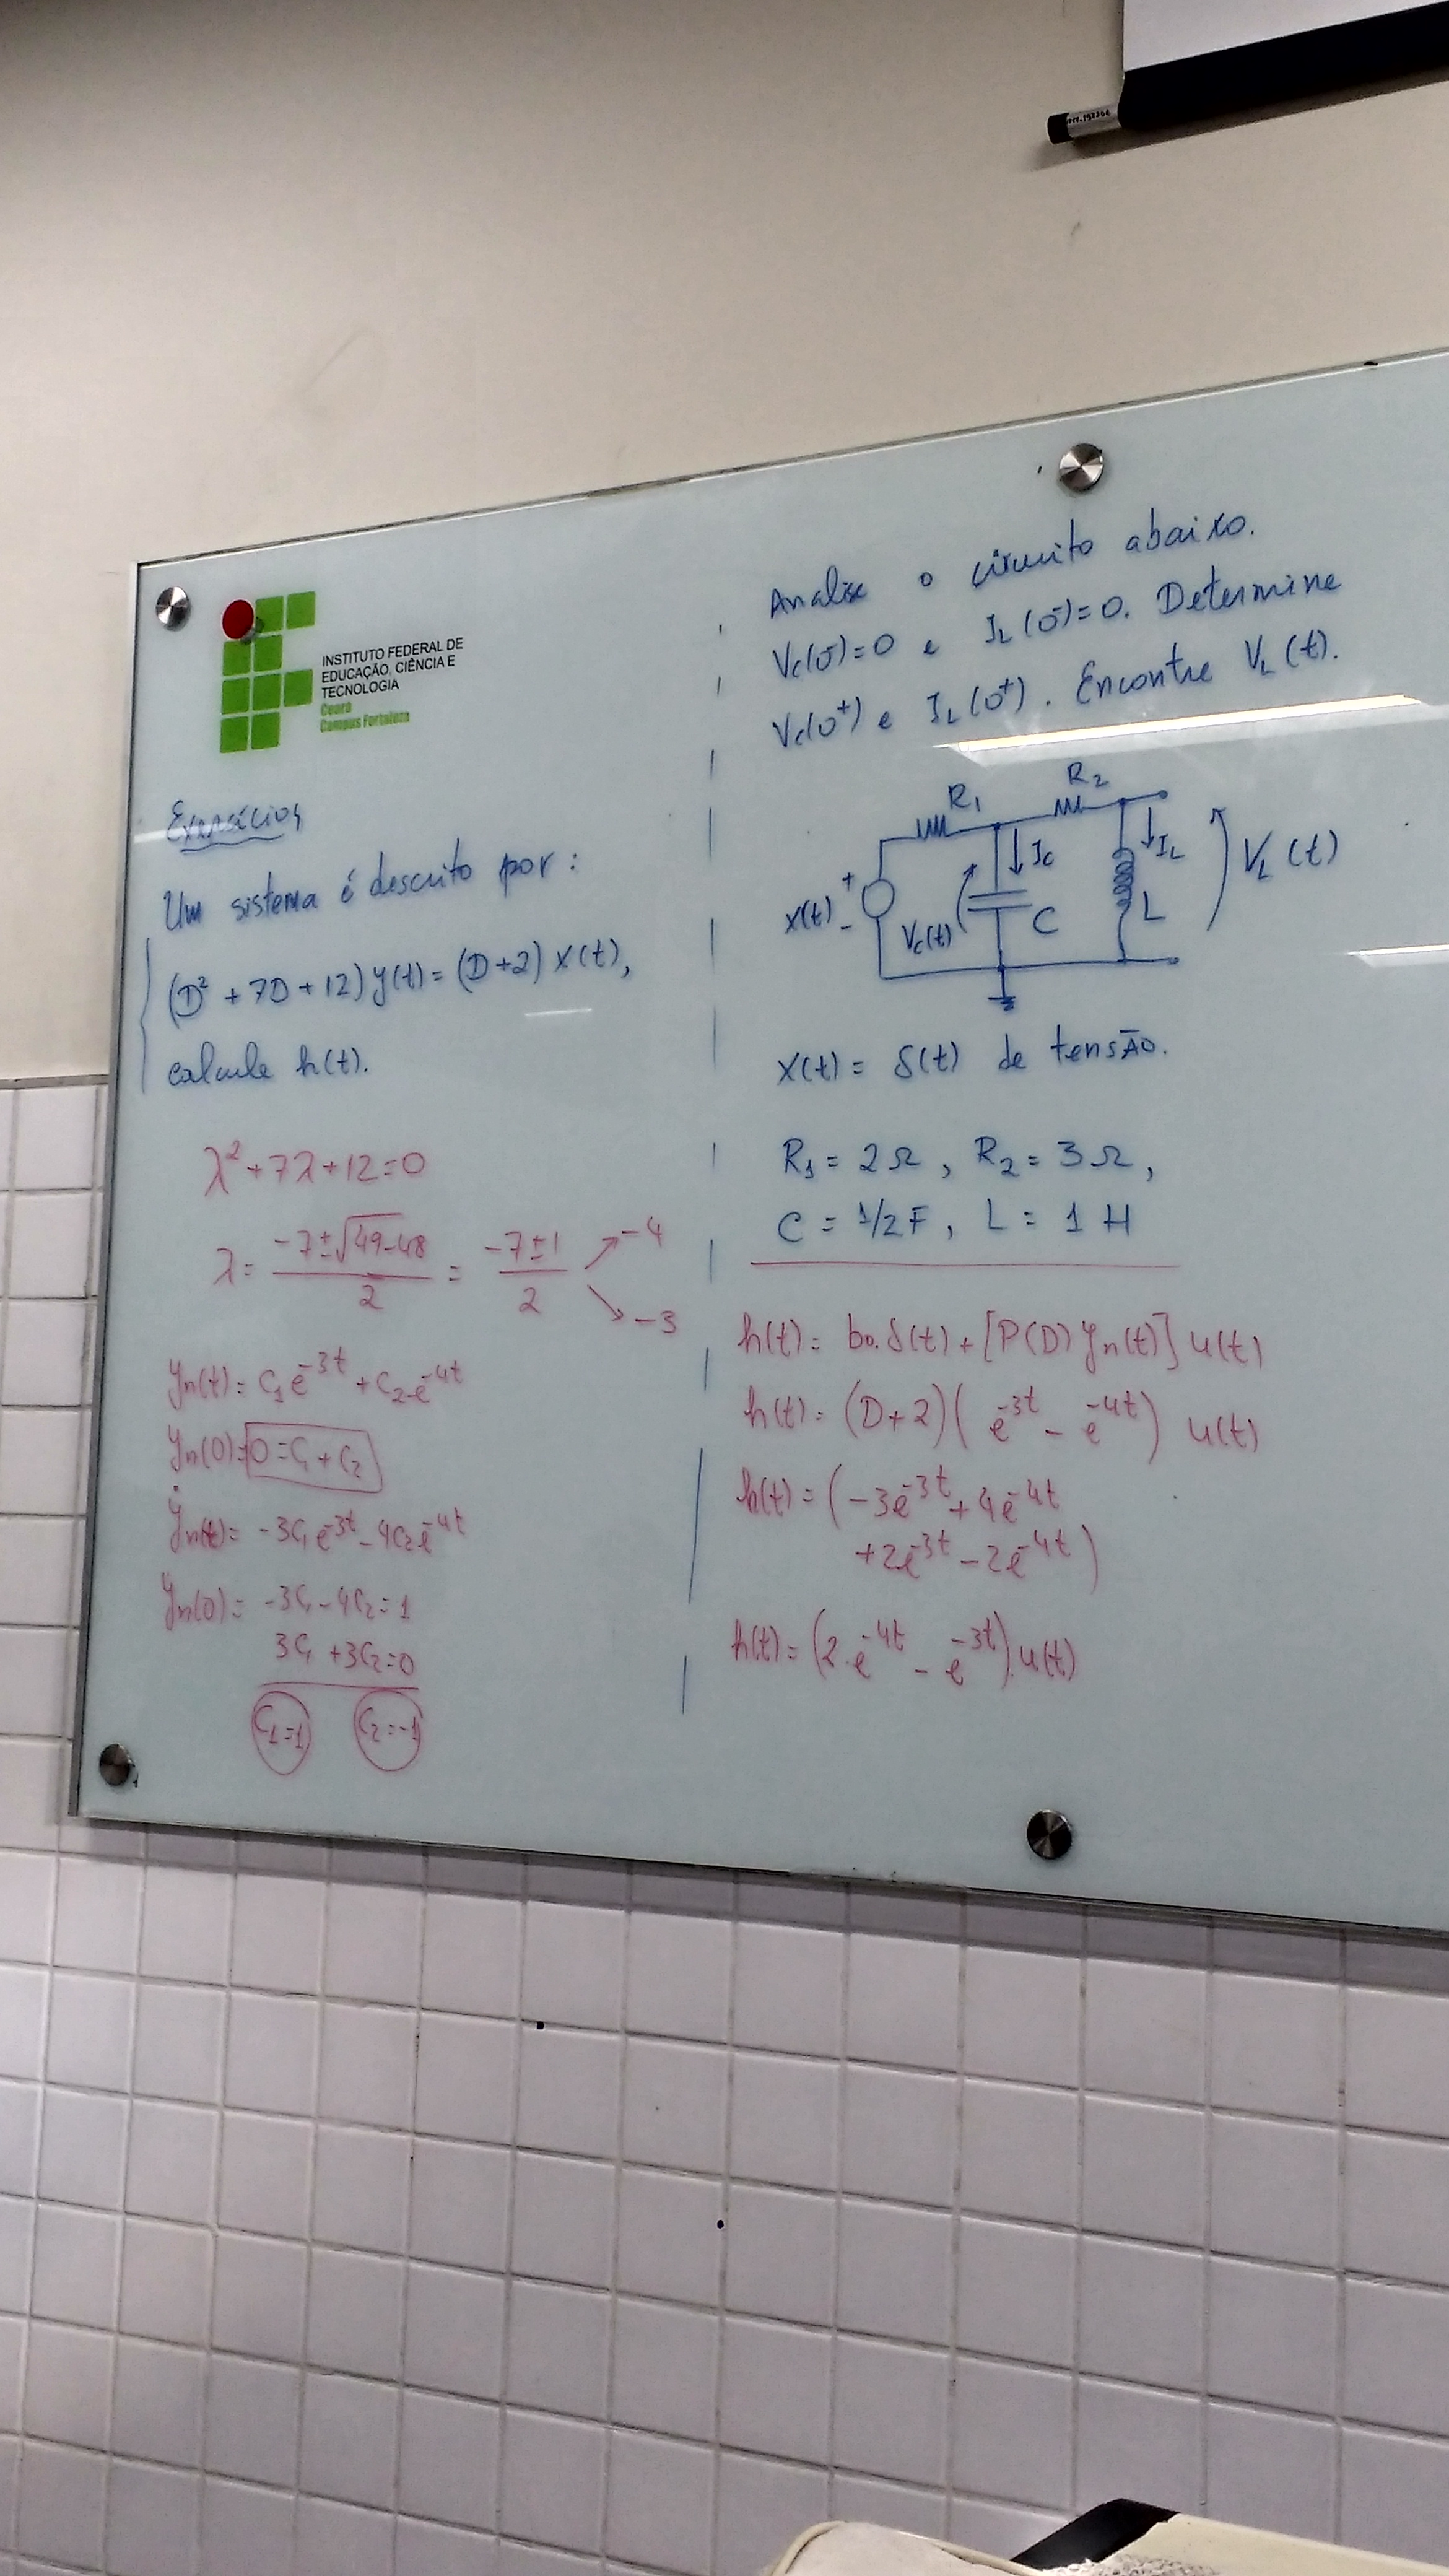 INSTITUTO FEDERAL DE
EDUCAÇÃO, CIÊNCIA E
TECNOLOGIA
Ceará
Campus Fortaleza
Exercícios
Um sistema é descrito por:
(D² + 7D + 12) y(t) = (D+2) x(t),
calcule h(t).
λ² + 7λ + 12 = 0
λ = (-7 ± √49-48)/2 = (-7 ± 1)/2 ↗ -4
↘ -3
yn(t) = C₁e^-3t + C₂e^-4t
yn(0) = 0 = C₁ + C₂
ẏn(t) = -3C₁e^-3t - 4C₂e^-4t
ẏn(0) = -3C₁ - 4C₂ = 1
3C₁ + 3C₂ = 0
C₁ = 1 C₂ = -1
Analise o circuito abaixo.
Vc(0⁻) = 0 e IL(0⁻) = 0. Determine
Vc(0⁺) e IL(0⁺). Encontre VL(t).
R₁ R₂
x(t) + - Vc(t) Ic C IL L VL(t)
x(t) = δ(t) de tensÃo.
R₁ = 2Ω, R₂ = 3Ω,
C = 1/2 F, L = 1 H
h(t) = b₀.δ(t) + [P(D) yn(t)] u(t)
h(t) = (D+2)(e^-3t - e^-4t) u(t)
h(t) = (-3e^-3t + 4e^-4t
+2e^-3t - 2e^-4t)
h(t) = (2.e^-4t - e^-3t).u(t)